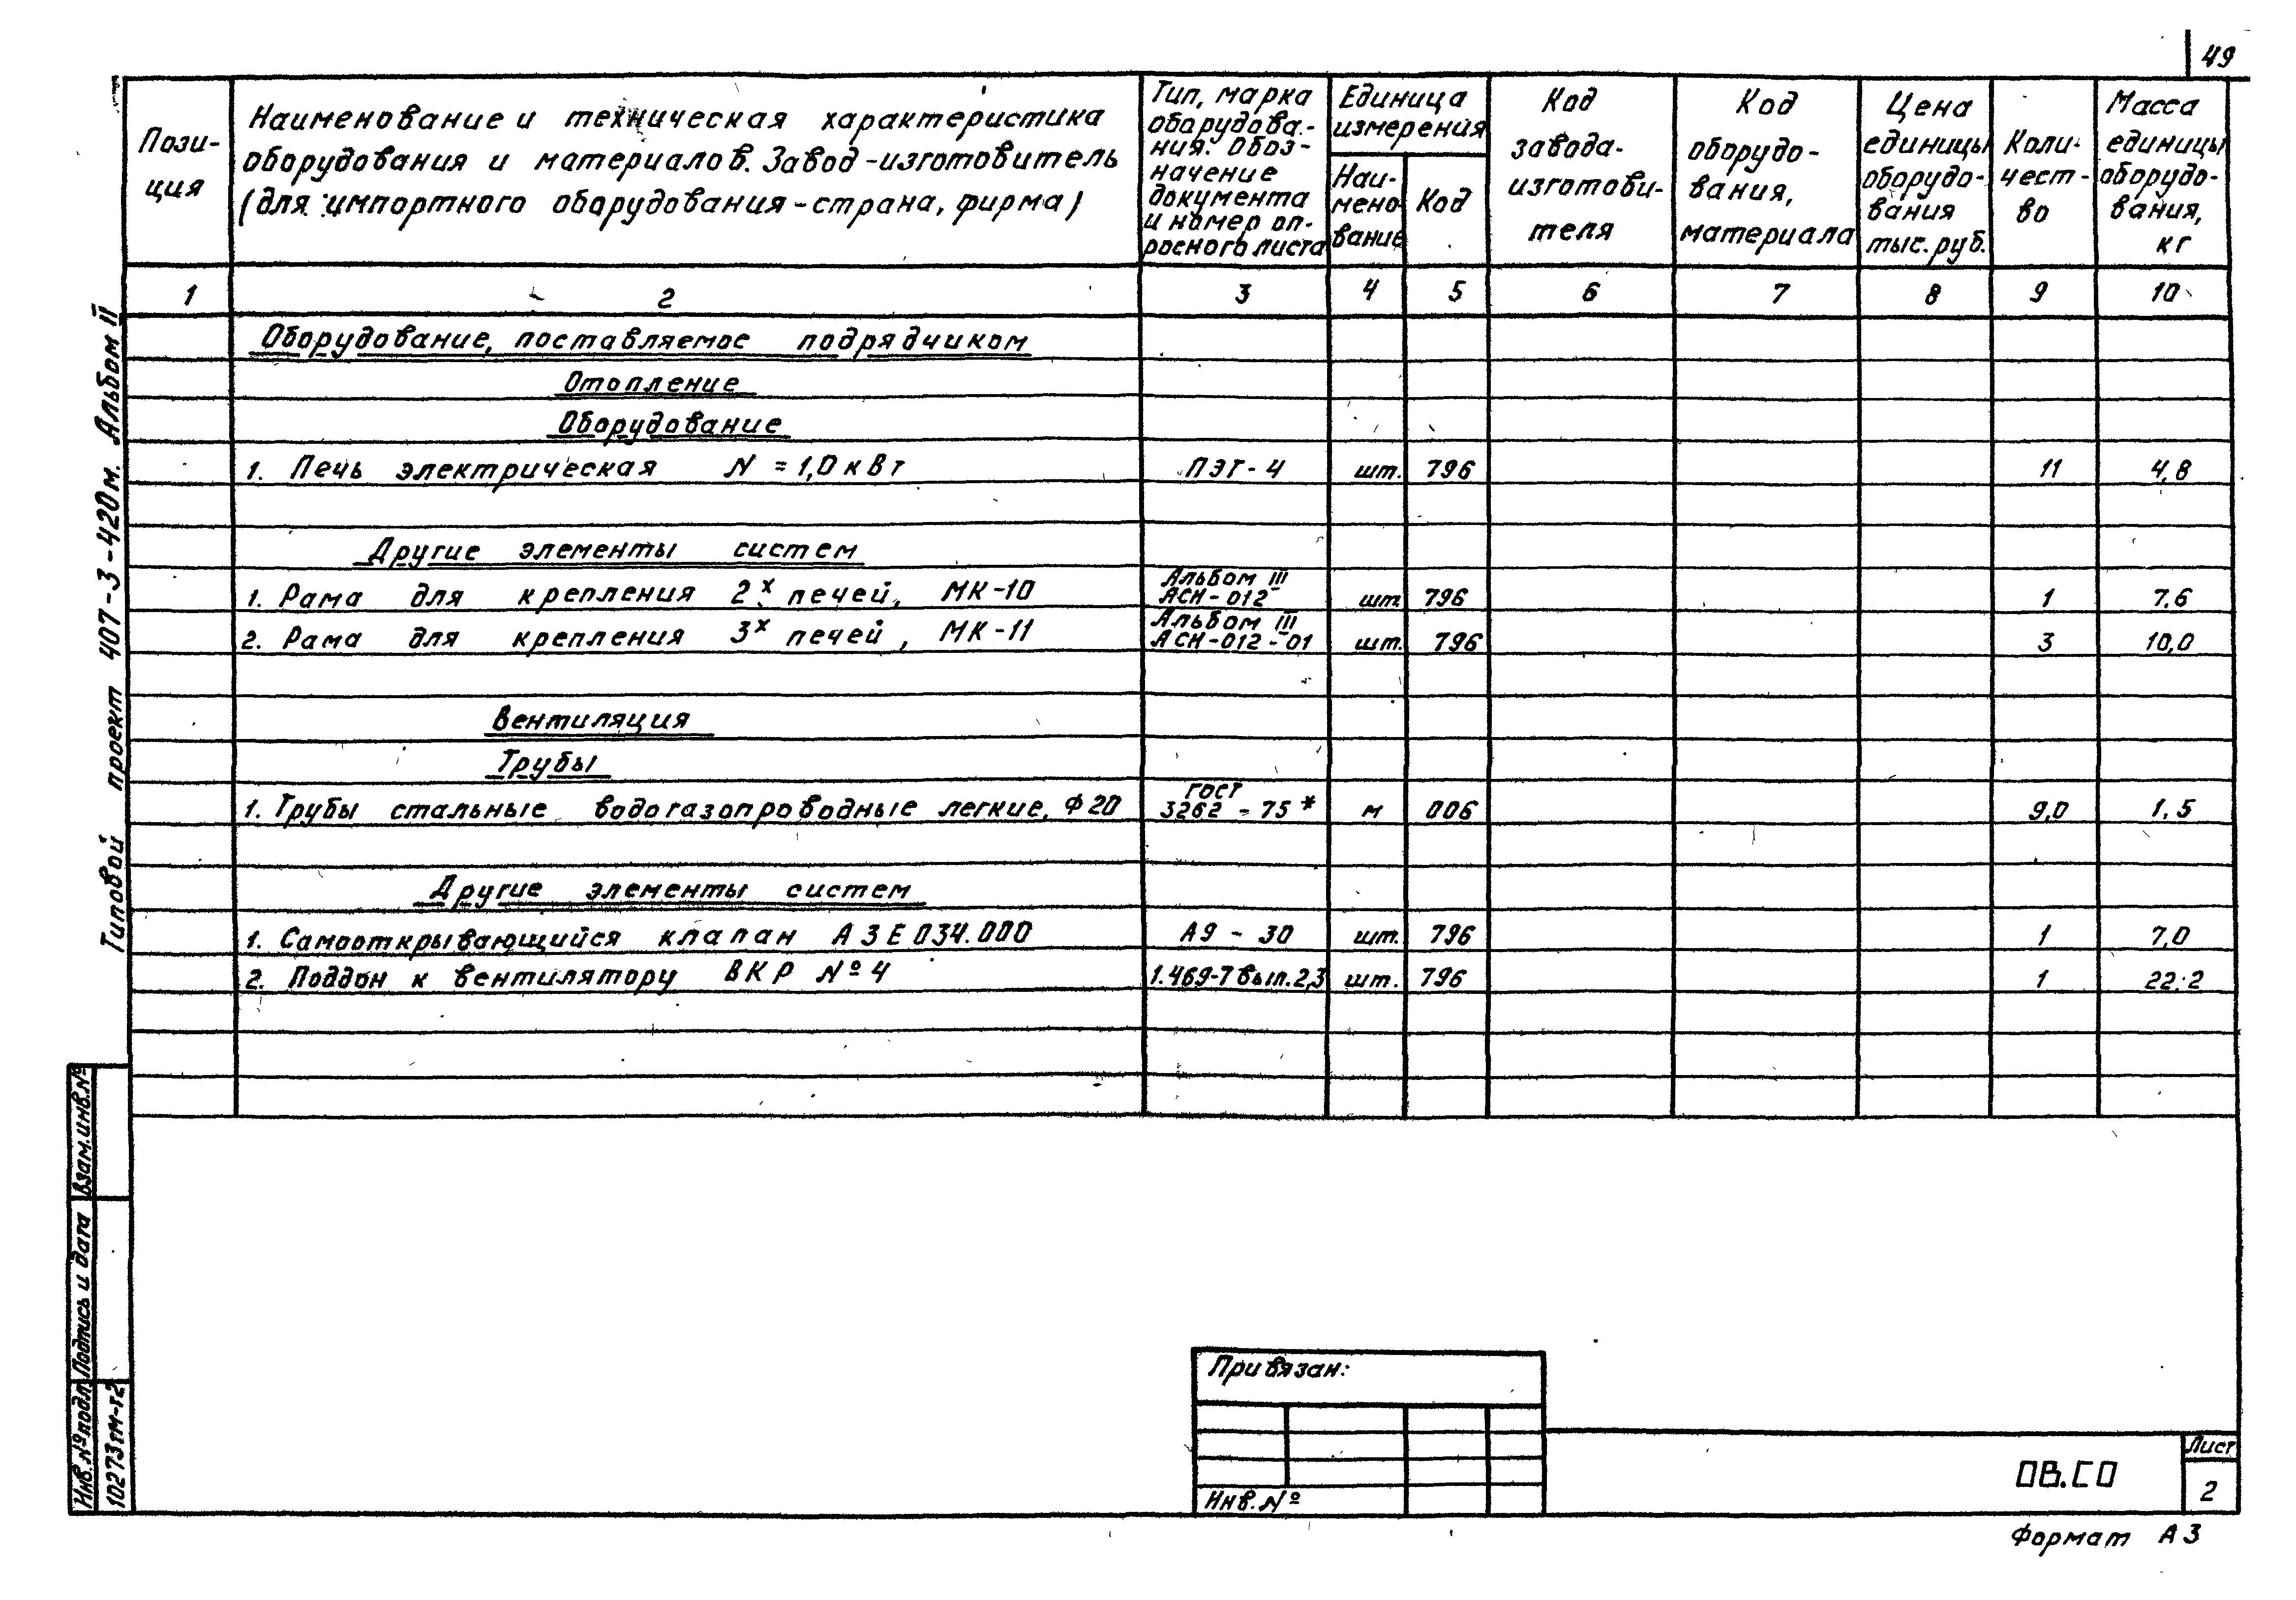 49
Пози-
ция
Наименование и техническая характеристика
оборудования и материалов. Завод-изготовитель
(для импортного оборудования-страна, фирма)
Тип, марка
оборудова-
ния. Обоз-
начение
документа
и номер оп-
росного листа
Единица
измерения
Наи-
мено-
вание
Код
Код
завода-
изготови-
теля
Код
оборудо-
вания,
материала
Цена
единицы
оборудо-
вания
тыс. руб.
Коли-
чест-
во
Масса
единицы
оборудо-
вания,
кг
1 2 3 4 5 6 7 8 9 10
Оборудование, поставляемое подрядчиком
Отопление
Оборудование
1. Печь электрическая N = 1,0 кВт ПЭТ-4 шт. 796 11 4,8
Другие элементы систем
1. Рама для крепления 2х печей, МК-10 Альбом III АСН-012 шт. 796 1 7.6
2. Рама для крепления 3х печей, МК-11 Альбом III АСН-012-01 шт. 796 3 10,0
Вентиляция
Трубы
1. Трубы стальные водогазопроводные легкие, Ф20 ГОСТ 3262-75* м 006 9,0 1,5
Другие элементы систем
1. Самооткрывающийся клапан АЗЕ 034.000 А9-30 шт. 796 1 7,0
2. Поддон к вентилятору ВКР №4 1.469-7 вып.2,3 шт. 796 1 22.2
Типовой проект 407-3-420м. Альбом II
Взам.инв.№
Подпись и дата
Инв.№подл.
10273тм-т2
Привязан:
Инв.№
ОВ.СО
Лист
2
Формат А3